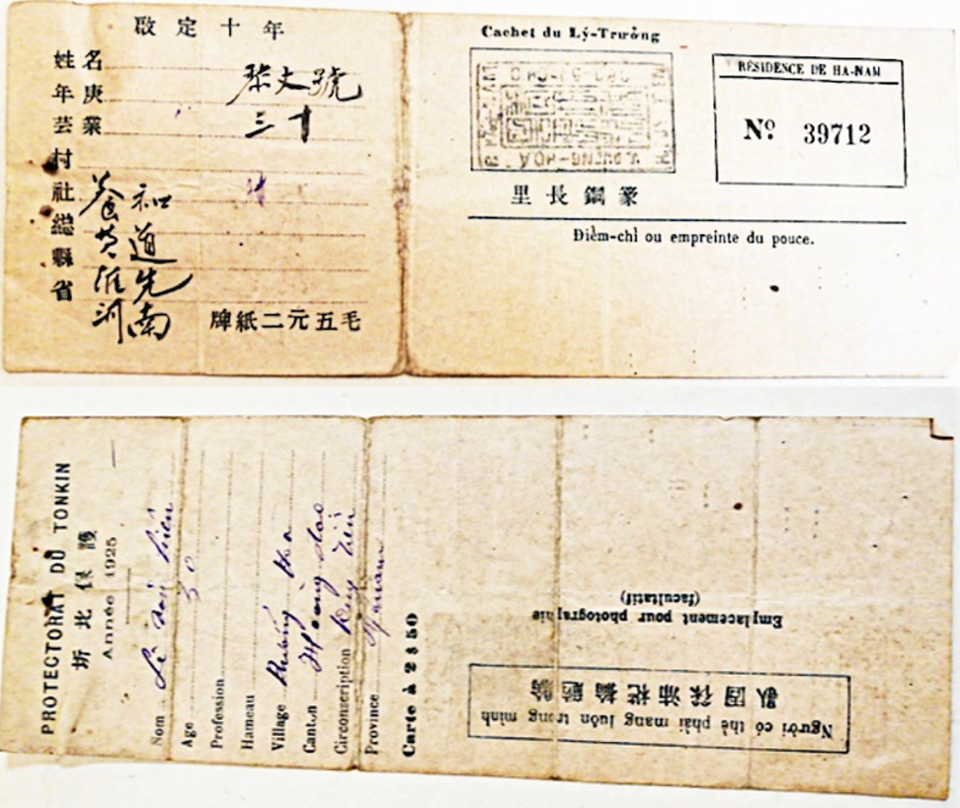 啟定十年
姓名 黎文號
年庚 三十
芸業
村
社 養和
總 黄道
縣 維先
省 河南
牌紙二元五毛
Cachet du Lý-Trưởng
DUONG-HOA
里長鋼篆
RÉSIDENCE DE HA-NAM
Nº 39712
Điềm-chỉ ou empreinte du pouce.
PROTECTORAT DU TONKIN
圻北保護
Année 1925
Nom Lê
Age 30
Profession
Hameau
Village Dưỡng Hoa
Canton Hoàng đạo
Circonscription Duy Tiên
Province Hanam
Carte à 2$50
Emplacement pour photographie
(facultatif)
Người có thẻ phải mang luôn trong mình